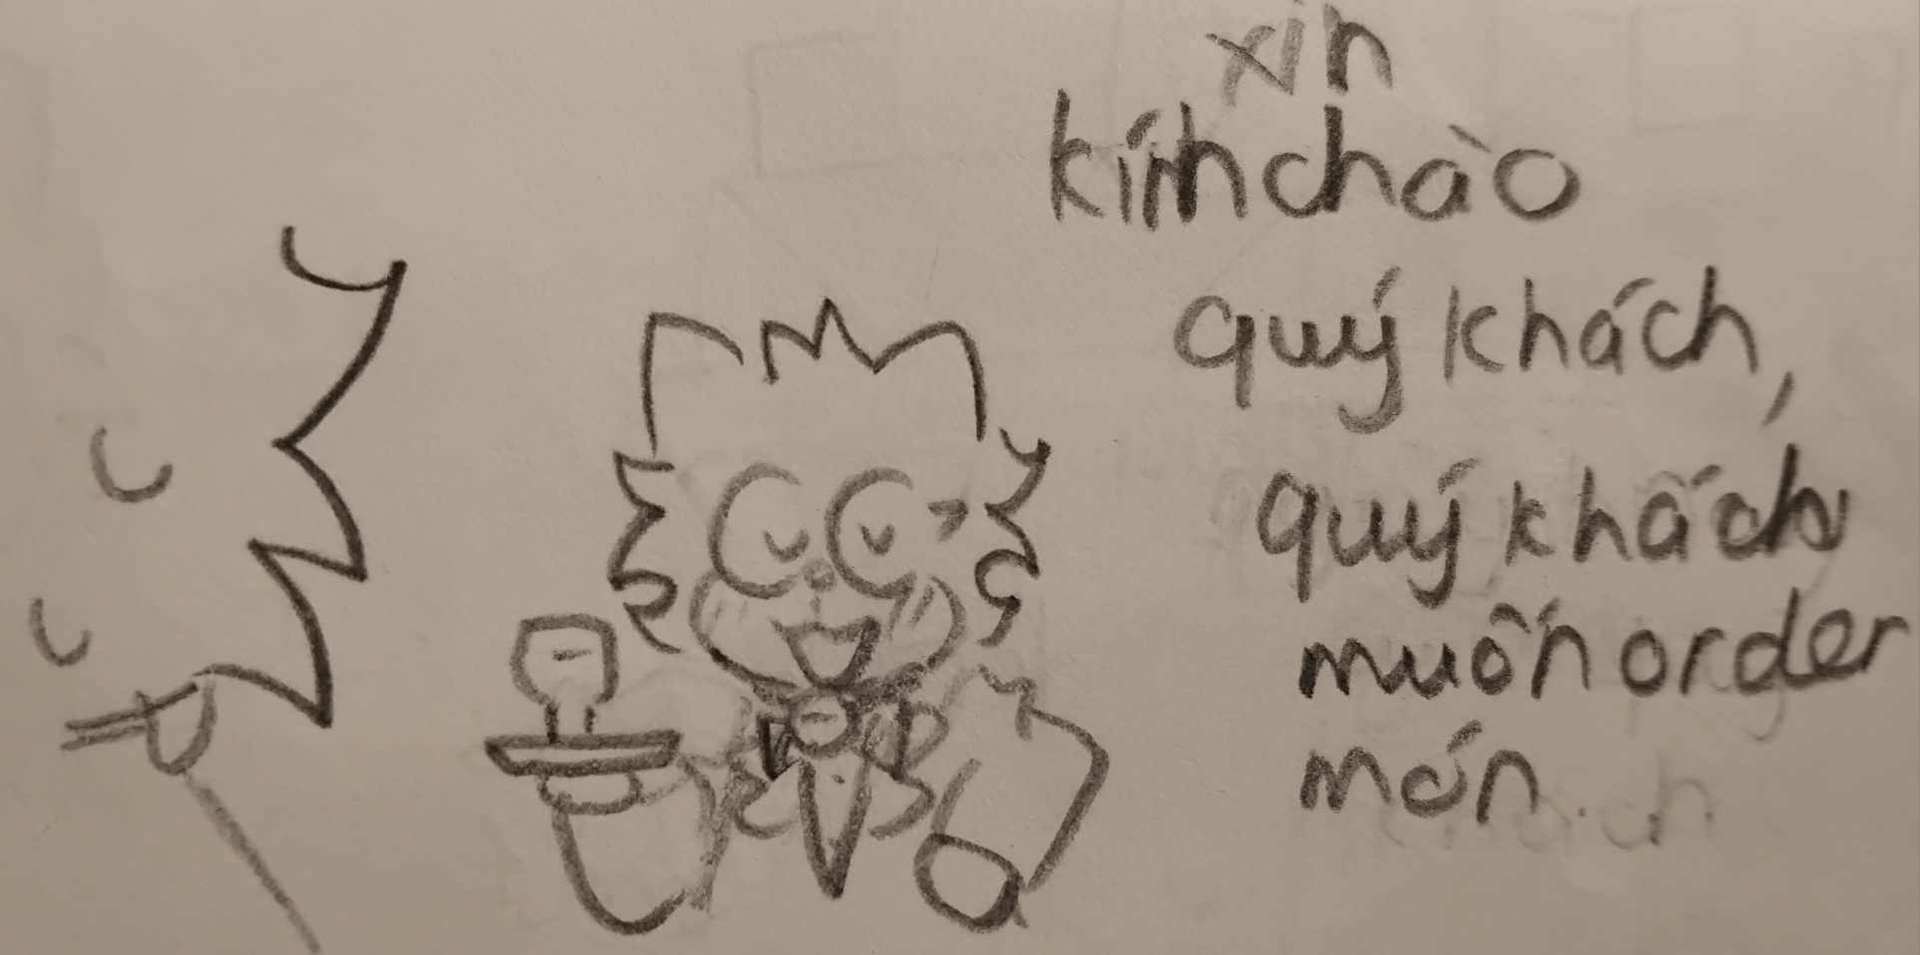 xin
kính chào
quý khách,
quý khách
muốn order
món.